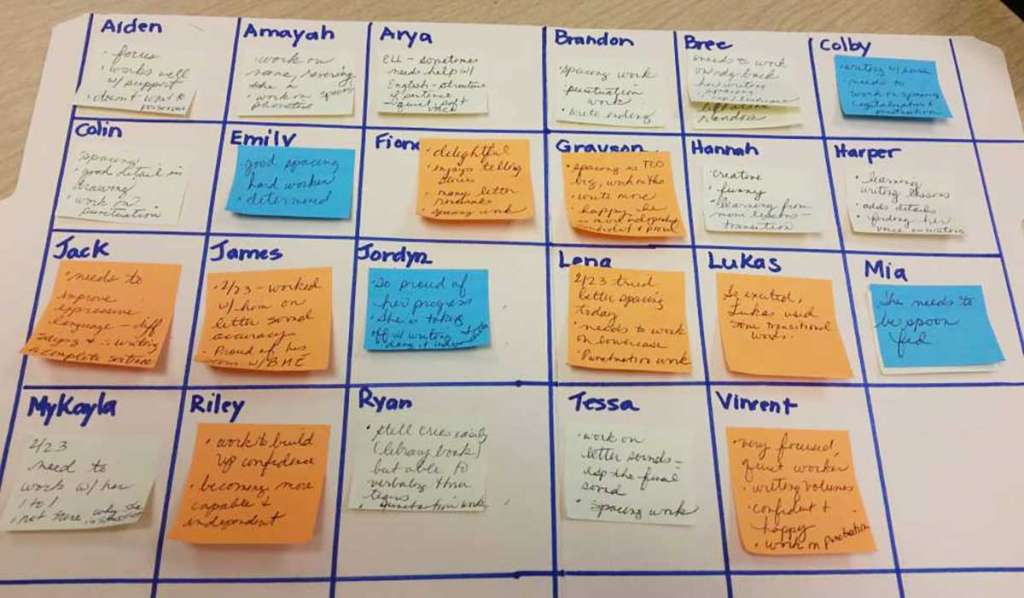 Aiden
• focus
• works well
w/ support
• doesn't want to
Amayah
work on
name, reversing
the a
• work on spacing
Arya
ELL - sometimes
needs help w/
English - structure
of sentence
quiet soft
Brandon
spacing work
punctuation
work
• write ending
Bree
needs to work
on
her writing
spacing
Colby
• writing w/ ease
needs to
work on spacing
capitalization &
punctuation
Colin
spacing
• good detail in
drawing
• work on
punctuation
Emily
• good spacing
hard worker
• determined
Fiona
• delightful
• enjoys telling
stories
• many letter
reversals
• spacing work
Grayson
• spacing is TOO
big, work on this
• write more
• happy, he
Hannah
creative
• funny
• learning from
mini lessons -
transition
Harper
• learning
writing lessons
• adds details
• finding her
voice in writing
Jack
• needs to
improve
expressive
language - diff
writing
a complete sentence
James
• 2/23 - worked
w/ him on
letter sound
accuracy
• Proud of his
Jordyn
• So proud of
her progress
• She is taking
off w/ writing
Lena
2/23 tried
letter spacing
today
• needs to work
on lowercase
• Punctuation work
Lukas
So excited,
Lukas used
some transitional
words.
Mia
She needs to
be spoon
fed
MyKayla
2/23
need to
work w/ her
1 to 1
• not sure why she
Riley
• work to build
up confidence
• becoming more
capable &
independent
Ryan
• still cries easily
(library book)
but able to
verbalize thru
tears
• punctuation work
Tessa
• work on
letter sounds -
esp the final
sound
• spacing work
Vincent
• very focused,
quiet worker
• writing volumes
• confident &
happy
• work on punctuation